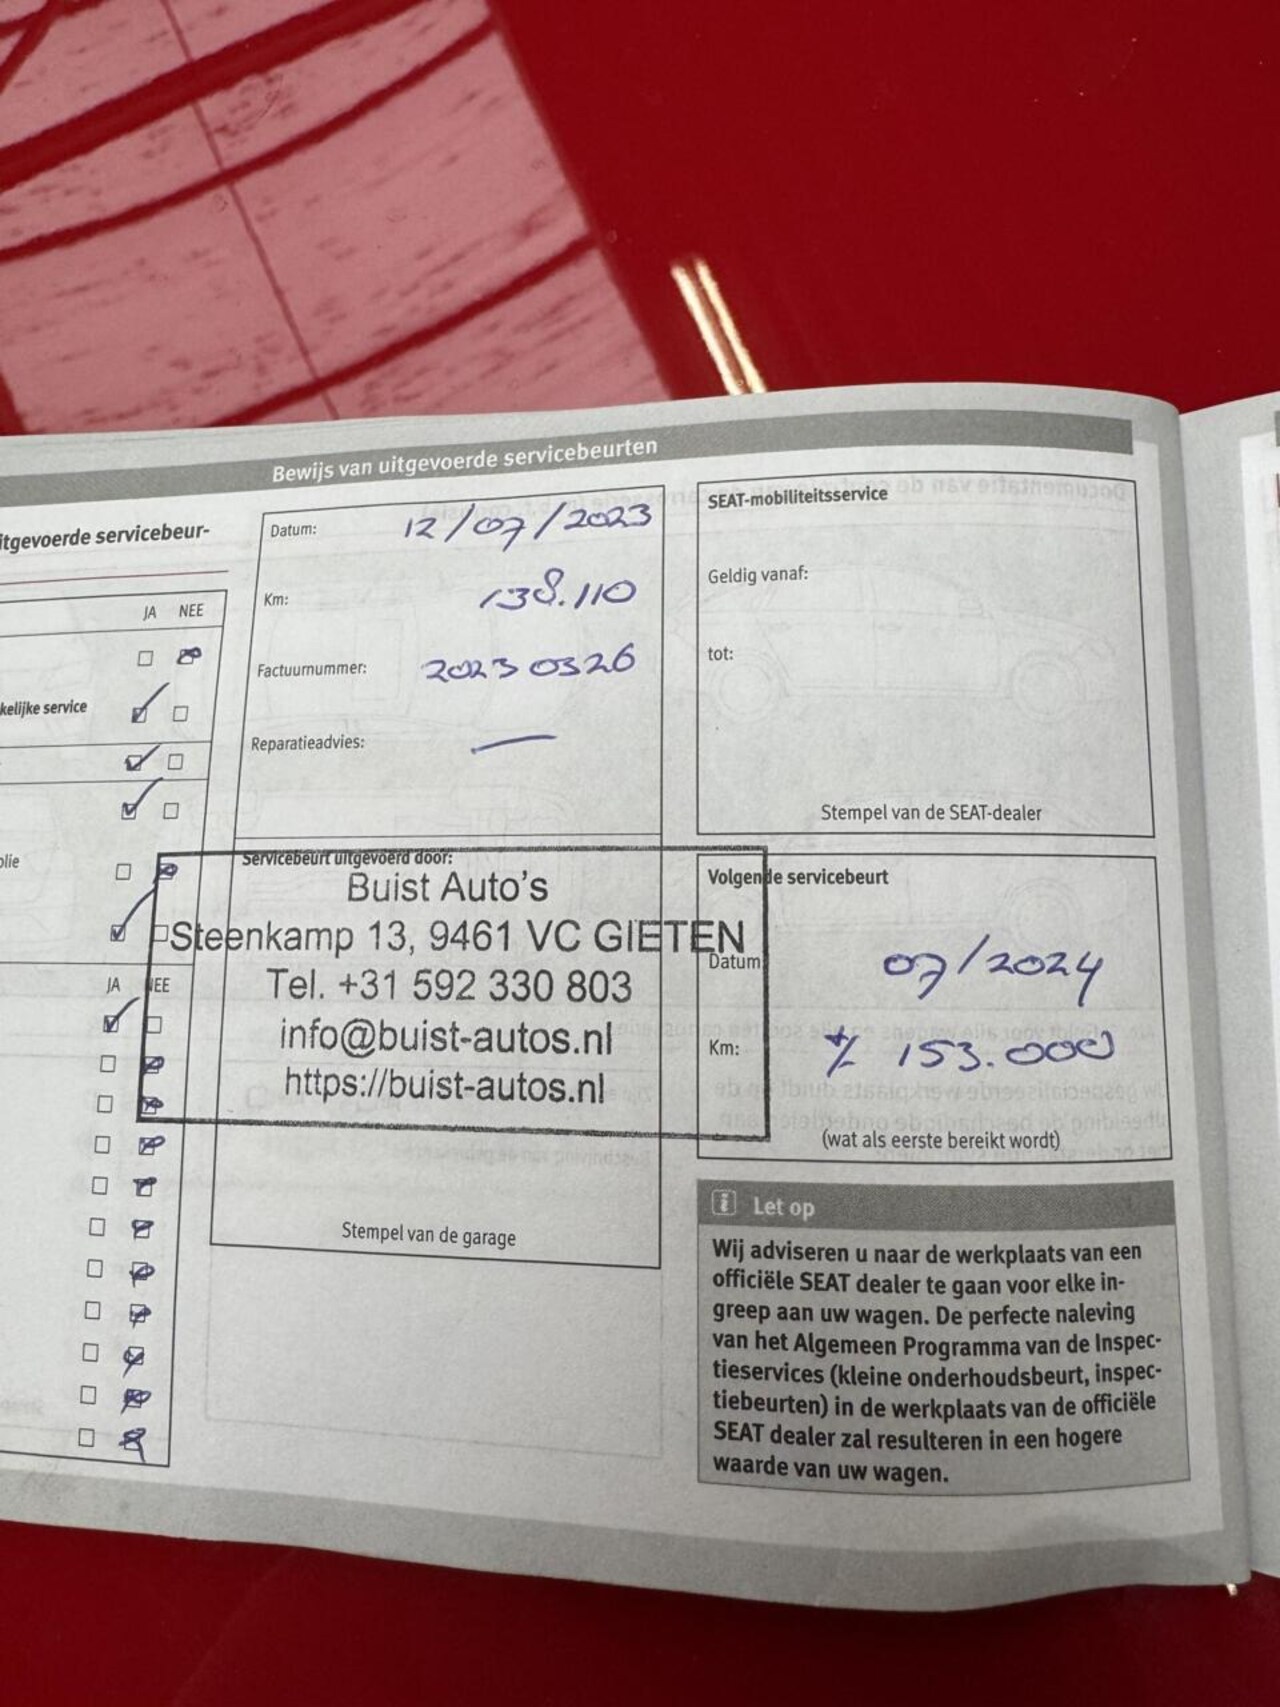 Bewijs van uitgevoerde servicebeurten
itgevoerde servicebeur-
JA NEE
kelijke service
olie
JA NEE
Datum: 12/07/2023
Km: 138.110
Factuurnummer: 2023 0326
Reparatieadvies: —
Servicebeurt uitgevoerd door:
Buist Auto's
Steenkamp 13, 9461 VC GIETEN
Tel. +31 592 330 803
info@buist-autos.nl
https://buist-autos.nl
Stempel van de garage
SEAT-mobiliteitsservice
Geldig vanaf:
tot:
Stempel van de SEAT-dealer
Volgende servicebeurt
Datum 07/2024
Km: 153.000
(wat als eerste bereikt wordt)
Let op
Wij adviseren u naar de werkplaats van een
officiële SEAT dealer te gaan voor elke in-
greep aan uw wagen. De perfecte naleving
van het Algemeen Programma van de Inspec-
tieservices (kleine onderhoudsbeurt, inspec-
tiebeurten) in de werkplaats van de officiële
SEAT dealer zal resulteren in een hogere
waarde van uw wagen.